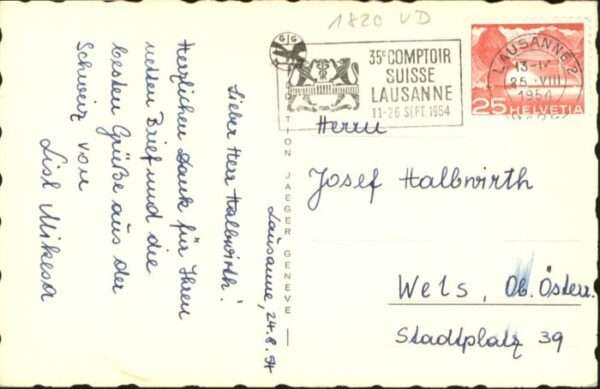 1820 VD
35e COMPTOIR
SUISSE
LAUSANNE
11-26 SEPT. 1954
LAUSANNE 2
13-14
25.VIII
1954
25 HELVETIA
Lausanne, 24.8.54
Lieber Herr Halbwirth!
Herzlichen Dank für Ihren
netten Brief und die
besten Grüße aus der
Schweiz von
Lisl Mikesa
JAEGER GENEVE
Herrn
Josef Halbwirth
Wels, Ob. Österr.
Stadtplatz 39